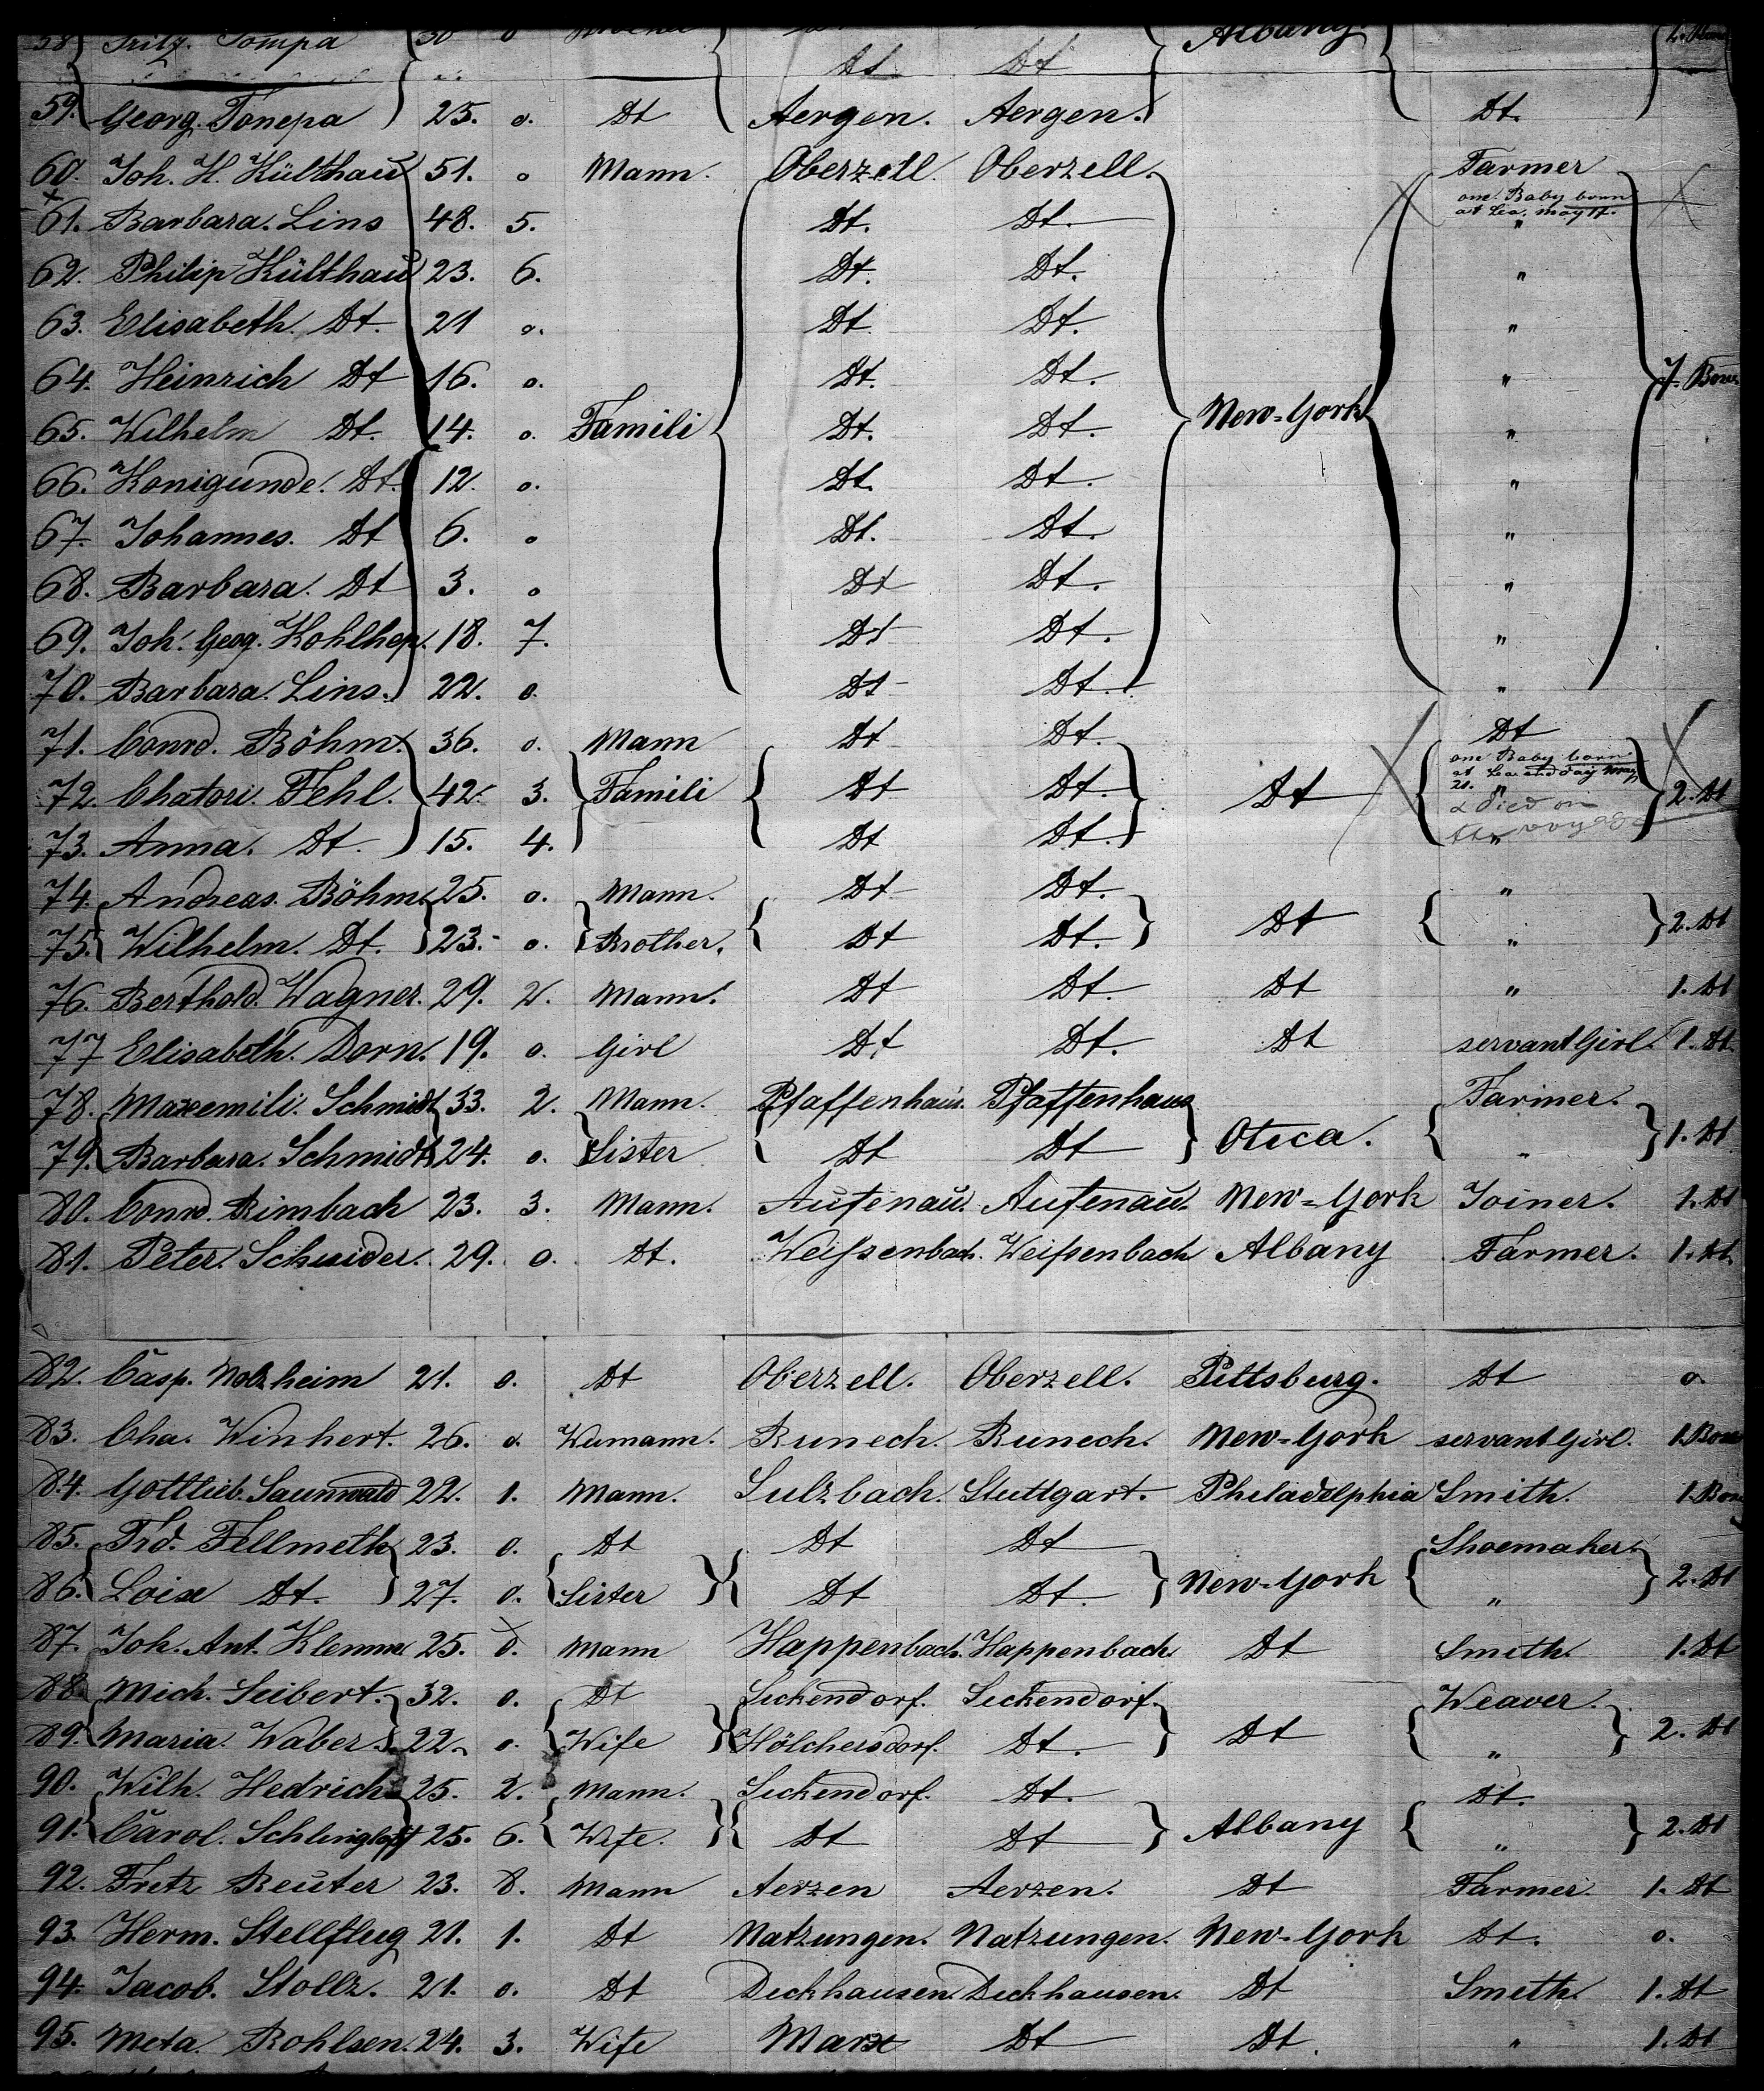 58 Fritz. Tompa 30 0 Albany
Dt Dt
59. Georg. Tonepa 25. o. Dt Aergen. Aergen. Dt.
60. Joh. H. Külthau 51. o Mann. Oberzell. Oberzell. Farmer
one Baby born
at Sea. may 17.
61. Barbara. Lins 48. 5. Dt. Dt. "
62. Philip Külthau 23. 6. Dt. Dt. "
63. Elisabeth. Dt 21 o. Dt. Dt. "
64. Heinrich Dt 16. o. Dt. Dt. " 7. Boxes
65. Wilhelm Dt. 14. o. Famili Dt. Dt. New-York "
66. Konigunde. Dt. 12. o. Dt. Dt. "
67. Johannes. Dt 6. o Dt. Dt. "
68. Barbara. Dt 3. o Dt Dt. "
69. Joh. Geog. Kohlhep. 18. 7. Dt Dt. "
70. Barbara. Lins. 22. o. Dt Dt. "
71. Conrd. Böhm. 36. o. Mann Dt Dt. Dt
one Baby born
at Sea and day May
21. "
72. Chatori. Fehl. 42. 3. Famili Dt Dt. Dt 2. Dt
& died on
the voyage
73. Anna. Dt. 15. 4. Dt Dt. "
74. Andreas. Böhm. 25. o. Mann. Dt Dt. "
75. Wilhelm. Dt. 23. o. Brother. Dt Dt. Dt " 2. Dt
76. Berthold. Wagner. 29. 2. Mann. Dt Dt. Dt " 1. Dt
77 Elisabeth. Dorn. 19. o. Girl Dt Dt. Dt servant Girl. 1. Dt.
78. Maxemili. Schmidt 33. 2. Mann. Pfaffenhaus. Pfaffenhaus Farmer.
79. Barbara. Schmidt 24. o. Sister Dt Dt Otica. " 1. Dt
80. Conrd. Rimbach 23. 3. Mann. Aufenau. Aufenau. New-York Joiner. 1. Dt
81. Peter. Schneider. 29. o. Dt. Weißenbach. Weißenbach Albany Farmer. 1. Dt.
82. Casp. Nolzheim 21. o. Dt Oberzell. Oberzell. Pittsburg. Dt o.
83. Cha. Winhert. 26. o. Wumann. Runech. Runech. New-York servant Girl. 1. Boxe
84. Gottlieb. Saunwald 22. 1. Mann. Sulzbach. Stuttgart. Philadelphia Smith. 1. Boxe
85. Frd. Fellmeth 23. o. Dt Dt Dt Shoemaker.
86. Loix Dt. 27. o. Sister Dt Dt. New-York " 2. Dt
87. Joh. Ant. Klemm 25. o. Mann Happenbach. Happenbach. Dt Smeth. 1. Dt
88. Mich. Seibert. 32. o. Dt Seckendorf. Seckendorf. Weaver.
89. Maria. Waber. 22. o. Wife Hölchersdorf. Dt. Dt " 2. Dt
90. Wilh. Hedrich 25. 2. Mann. Seckendorf. Dt. Dt.
91. Carol. Schlingloff 25. 6. Wife. Dt Dt Albany " 2. Dt
92. Fretz Reuter 23. 8. Mann Aerzen Aerzen. Dt Farmer. 1. Dt
93. Herm. Stellflug 21. 1. Dt Natzungen. Natzungen. New-York Dt. o.
94. Jacob. Stollz. 21. o. Dt Deckhausen Deckhausen. Dt Smeth. 1. Dt
95. Meta. Rohlsen. 24. 3. Wife Marx Dt Dt. " 1. Dt